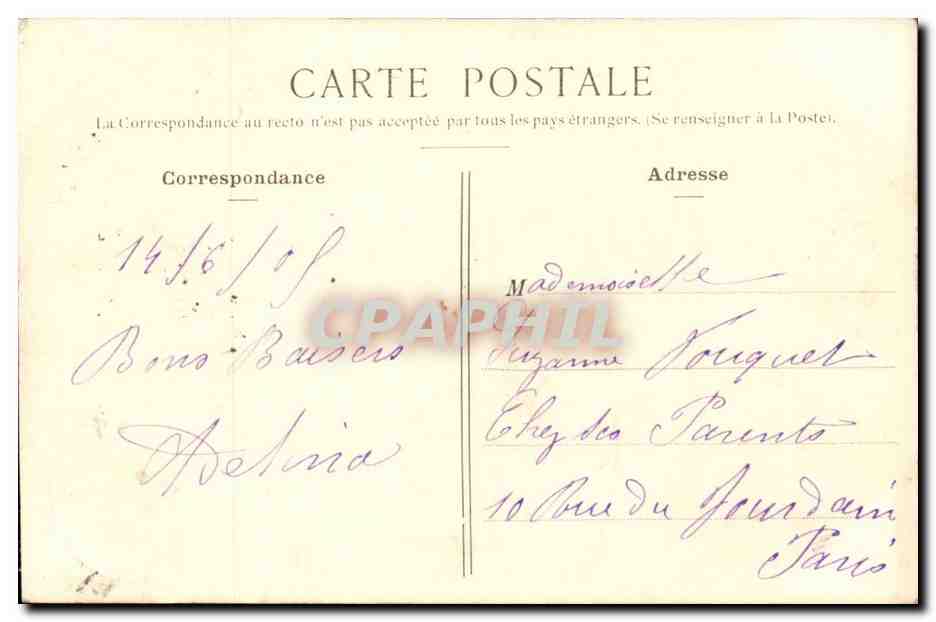 CARTE POSTALE
La Correspondance au recto n'est pas acceptée par tous les pays étrangers. (Se renseigner à la Poste).
Correspondance
14/6/05
Bons Baisers
Adelina
Adresse
Mademoiselle
Suzanne Fouquet
Chez ses Parents
10 Rue du Jourdain
Paris
CPAPHIL